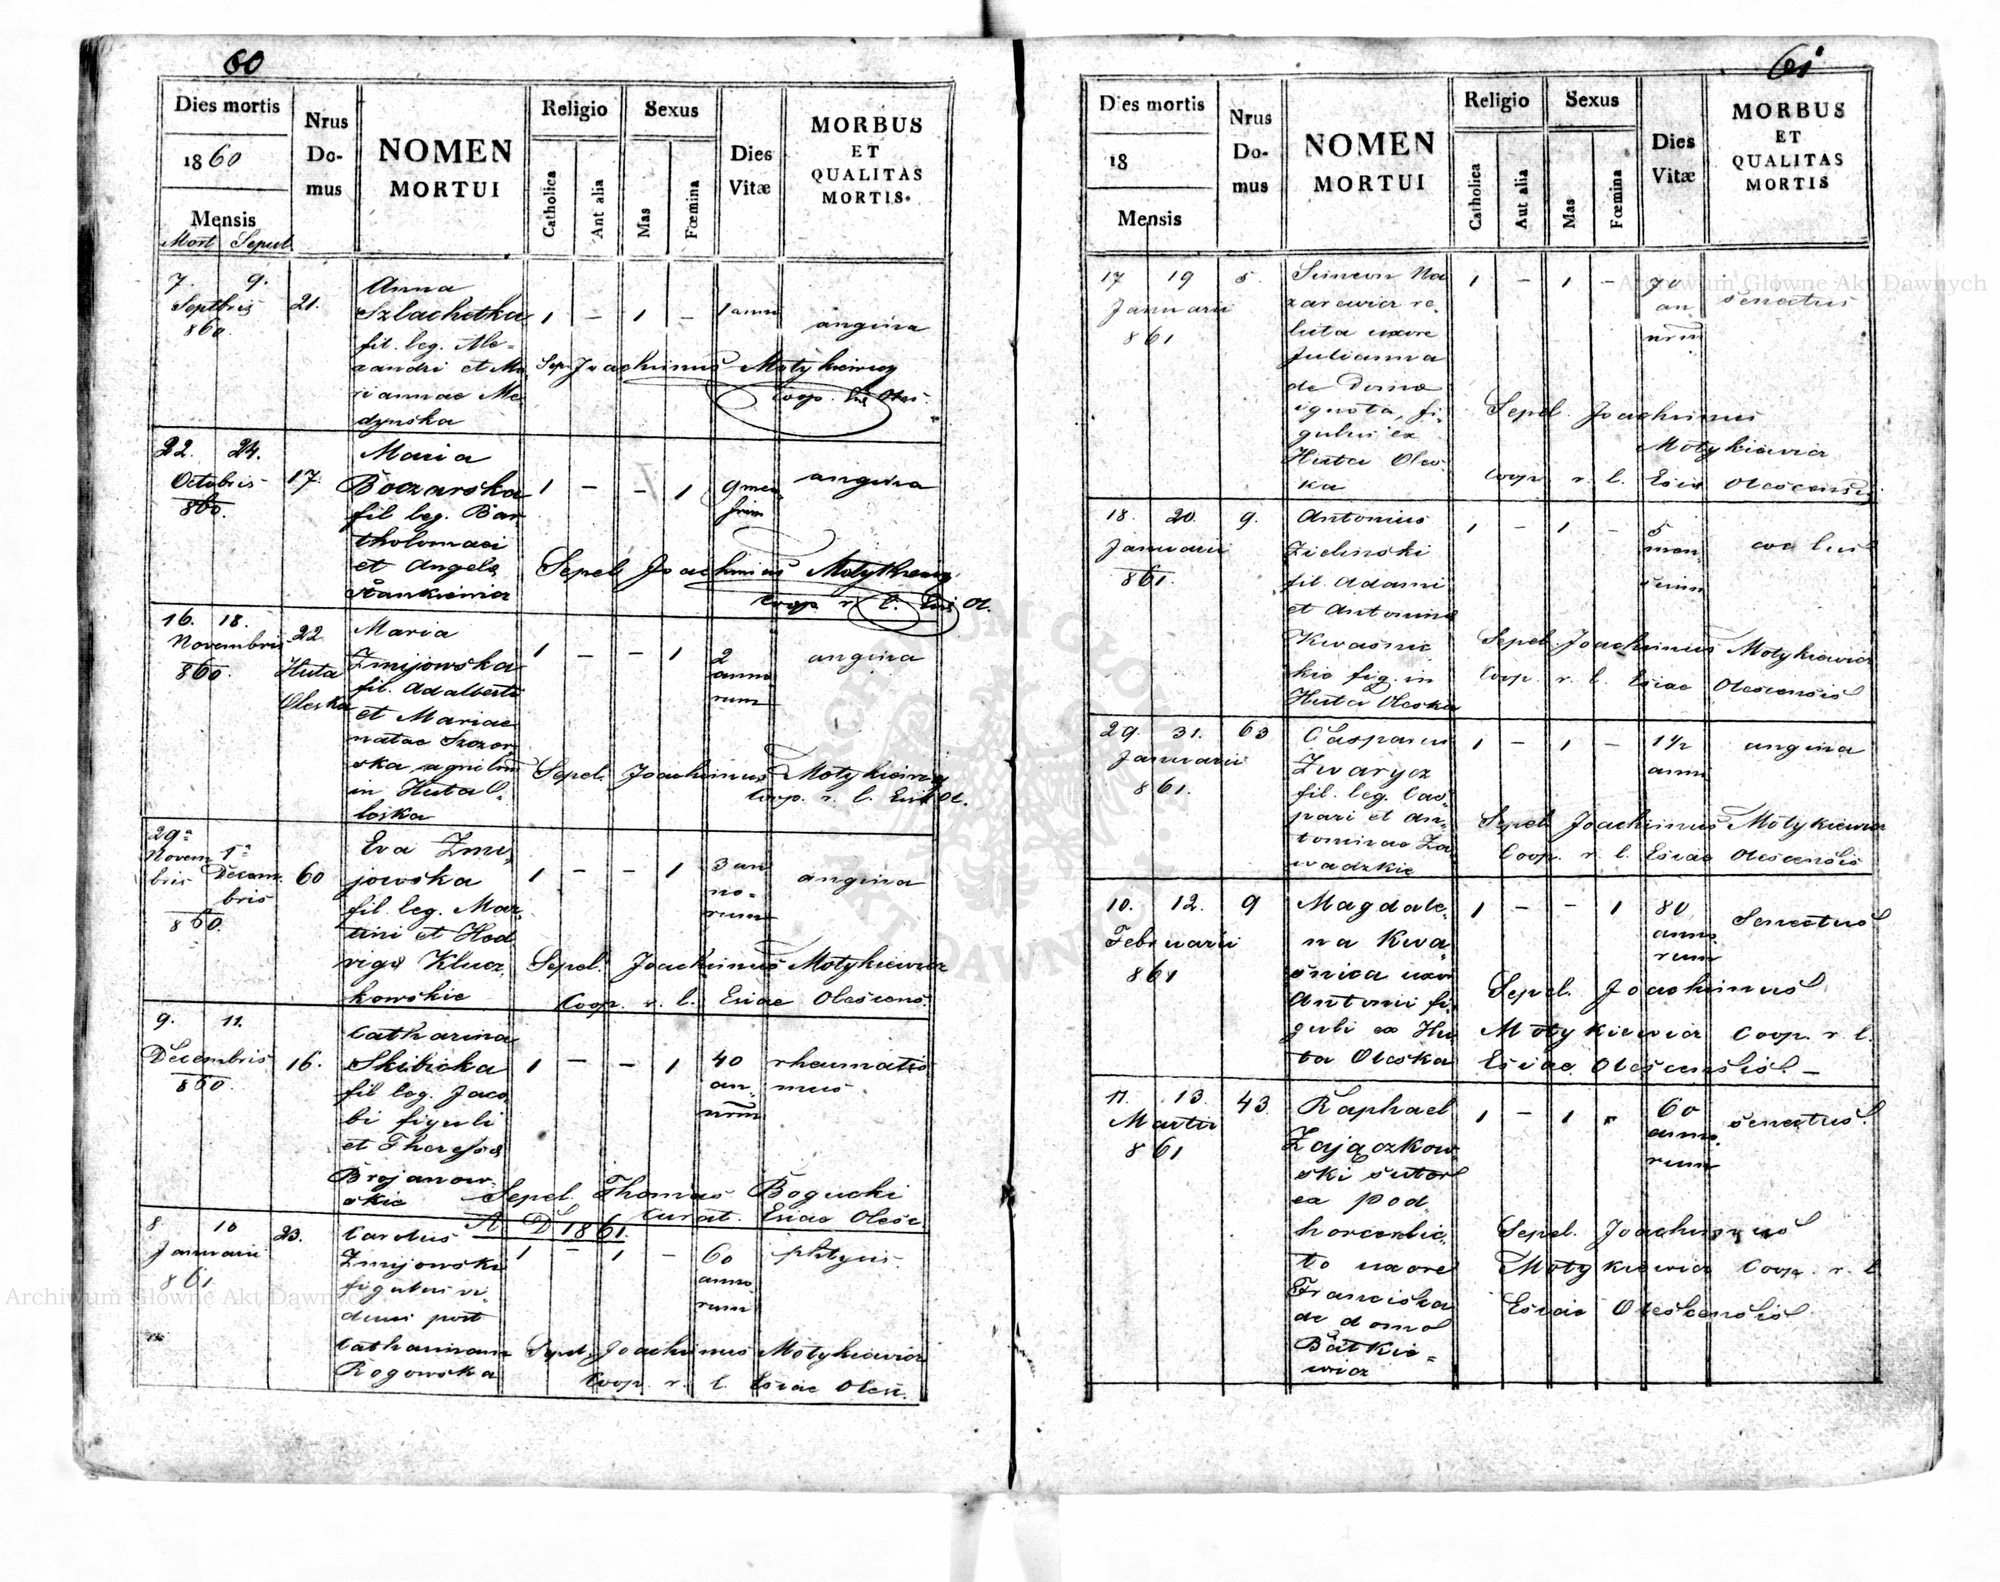 60
Dies mortis
1860
Mensis
Mort Sepult
Nrus Do-mus
NOMEN
MORTUI
Religio
Catholica
Aut alia
Sexus
Mas
Fœmina
Dies
Vitæ
MORBUS
ET
QUALITAS
MORTIS.
7. 9.
Septbris
860.
21.
Anna
Szlachetka
fil. leg. Ale-
xandri et Ma
riannae Me
dynska
1 — 1 —
1 anni
angina
Sep. Joachimus Motykiewicz
Coop.
22. 24.
Octobris
860.
17.
Maria
Boczarska
fil leg. Bar
tholomaei
et Angela
Stankiewicz
1 — — 1
9 men
sium
angina
Sepel Joachimus Motykiewicz
Coop r. l. Ol.
16. 18.
Novembris
860.
22
Huta
Oleska
Maria
Zmijowska
fil. Adalberti
et Mariae
natae Szczor
ska
in Huta O
leska
1 — — 1
2
anno
rum
angina
Sepel. Joachimus Motykiewicz
Coop. r. l. Ol.
29a
Novem
bris
1a
Decem
bris
860.
60
Eva Zmi
jowska
fil. leg. Mar
tini et Hed
vigis Klucz
kowskie
1 — — 1
3 an
no-
rum
angina
Sepel. Joachimus Motykiewicz
Coop. r. l. Ecciae Olescens
9. 11.
Decembris
860.
16.
Catharina
Skibicka
fil leg. Jaco
bi figuli
et Theressa
Brojanow
skie
1 — — 1
40
an-
norum
rheumatis
mus
Sepel. Thomas Bogucki
Curat. Ecciae Olesc.
A D 1861.
8 10
Januarii
861
23.
Carolus
Zmijowski
figulus vi-
duus post
Catharinam
Rogowska
1 — 1 —
60
anno
rum
phtysis.
Sepel. Joachimus Motykiewicz
Coop. r. l. Ecciae Olesc.
61
Dies mortis
18
Mensis
Nrus
Do-
mus
NOMEN
MORTUI
Religio
Catholica
Aut alia
Sexus
Mas
Fœmina
Dies
Vitæ
MORBUS
ET
QUALITAS
MORTIS
17 19
Januarii
861
5.
Simeon Na
zarewicz re
licta uxore
Julianna
de domo
ignota, fi-
gulus ex
Huta Oles-
ka
1 — 1 —
70
an-
norum
senectus
Sepel. Joachimus
Motykiewicz
Coop r. l. Eccia Olescensis
18. 20.
Januarii
861.
9.
Antonius
Zielinski
fil Adami
et Antonina
Kwasnic
kie fig. in
Huta Oleska
1 — 1 —
5
men
sium
Sepel Joachimus Motykiewicz
Coop. r. l. Ecciae Olescensis
29 31.
Januarii
861.
63
Casparus
Zwarycz
fil. leg. Cas-
pari et An-
toninae Za
wadzkie
1 — 1 —
1 1/2
anni
angina
Sepel Joachimus Motykiewicz
Coop. r. l. Ecciae Olescensis
10. 12.
Februarii
861
9
Magdale-
na Kwa
snica uxor
Antonii fi-
guli ex Hu
ta Oleska
1 — — 1
80
anno
rum
Senectus
Sepel. Joachimus
Motykiewicz Coop. r. l.
Eccae Olescensis. —
11. 13.
Martii
861
43
Raphael
Zajączkow
ski sutor
ex Pod
horce
to uxore
Franciska
de domo
Batkie-
wicz
1 — 1 —
60
anno
rum
senectus.
Sepel. Joachimus
Motykiewicz Coop. r. l
Eccae Oleskensis
Archiwum Główne Akt Dawnych
Archiwum Główne Akt Dawnych
ARCHIWUM GŁÓWNE AKT DAWNYCH